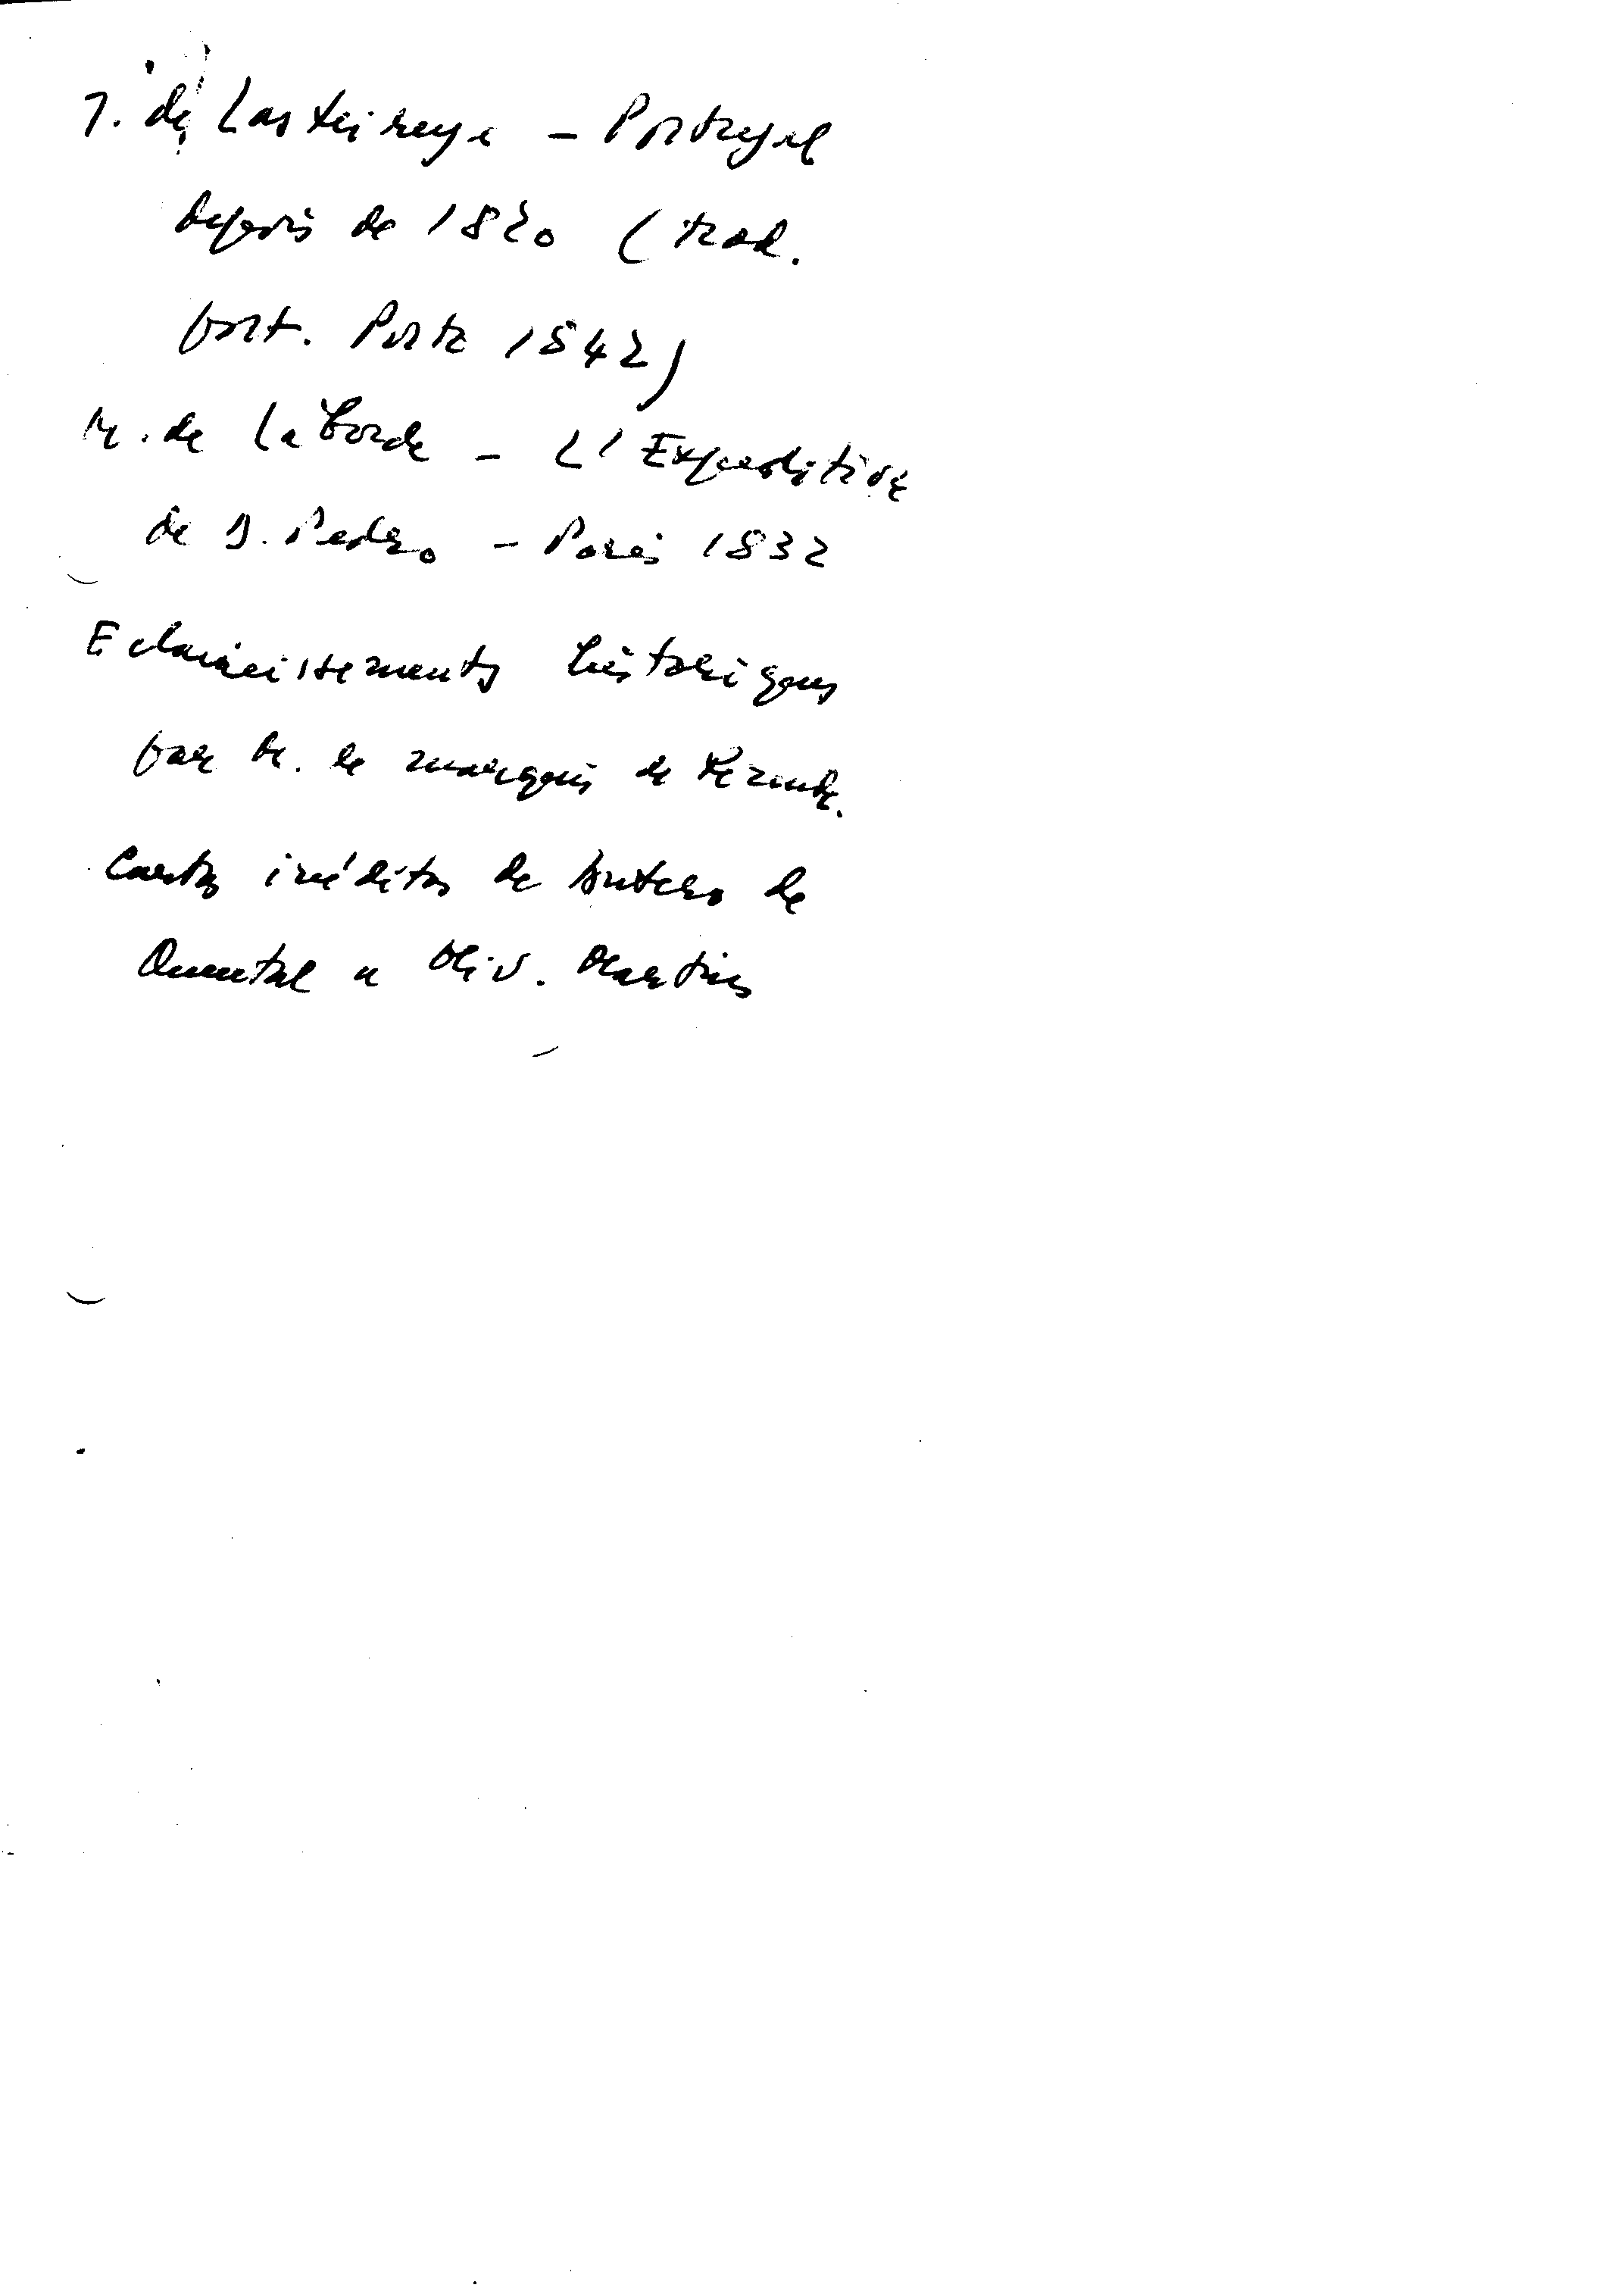 J. de Lasteyrie – Portugal
depois de 1820 (trad.
port. Porto 1842)
M. de Laborde – L'Expedition
de D. Pedro – Paris 1832
Eclaircissements historiques
par M. le marquis de Rezende.
Cartas inéditas de Antero de
Quental a Oliv. Martins